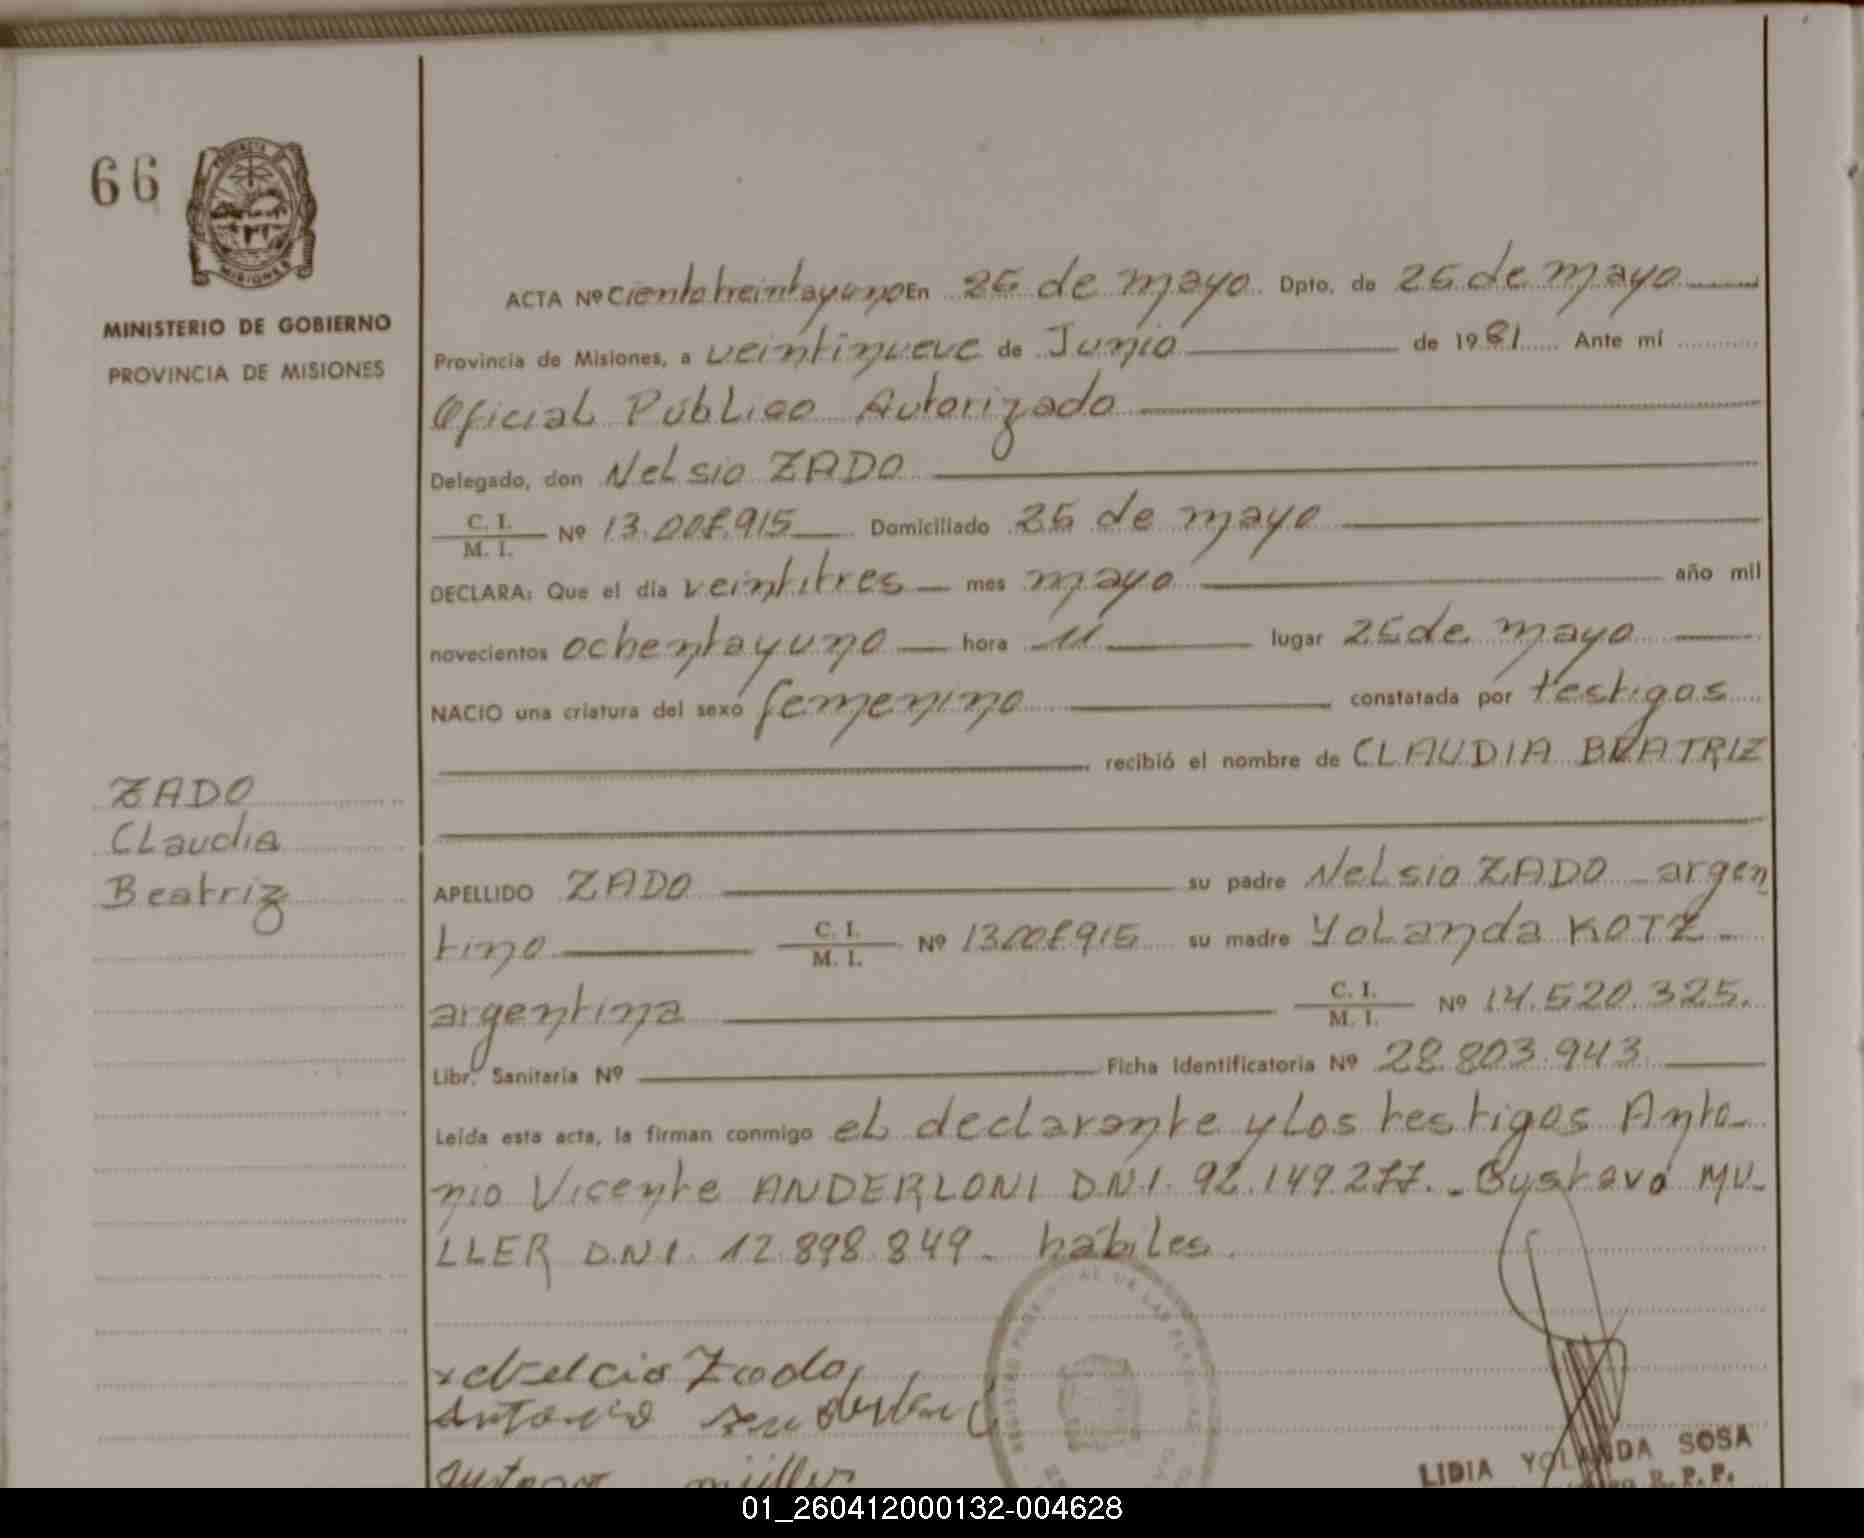 66
MINISTERIO DE GOBIERNO
PROVINCIA DE MISIONES
ACTA Nº cientotreintayuno En 25 de mayo Dpto. de 25 de mayo
Provincia de Misiones, a veintinueve de Junio de 1981 Ante mí
Oficial Público Autorizado
Delegado, don Nelsio ZADO
C. I.
M. I. Nº 13.008.915 Domiciliado 25 de mayo
DECLARA: Que el día veintitres mes mayo año mil
novecientos ochentayuno hora 11 lugar 25 de mayo
NACIO una criatura del sexo femenino constatada por testigos
recibió el nombre de CLAUDIA BEATRIZ
ZADO
Claudia
Beatriz
APELLIDO ZADO su padre Nelsio ZADO argen
tino C. I.
M. I. Nº 13.008.915 su madre Yolanda KOTZ
argentina C. I.
M. I. Nº 14.520.325.
Libr. Sanitaria Nº Ficha Identificatoria Nº 28.803.943
Leída esta acta, la firman conmigo el declarante y los testigos Anto-
nio Vicente ANDERLONI D.N.I. 92.149.277.- Gustavo MU-
LLER D.N.I. 12.898.849- hábiles.
Nelcio Zado
Antonio
Gustavo müller
LIDIA YOLANDA SOSA
R. P. P.
01_260412000132-004628